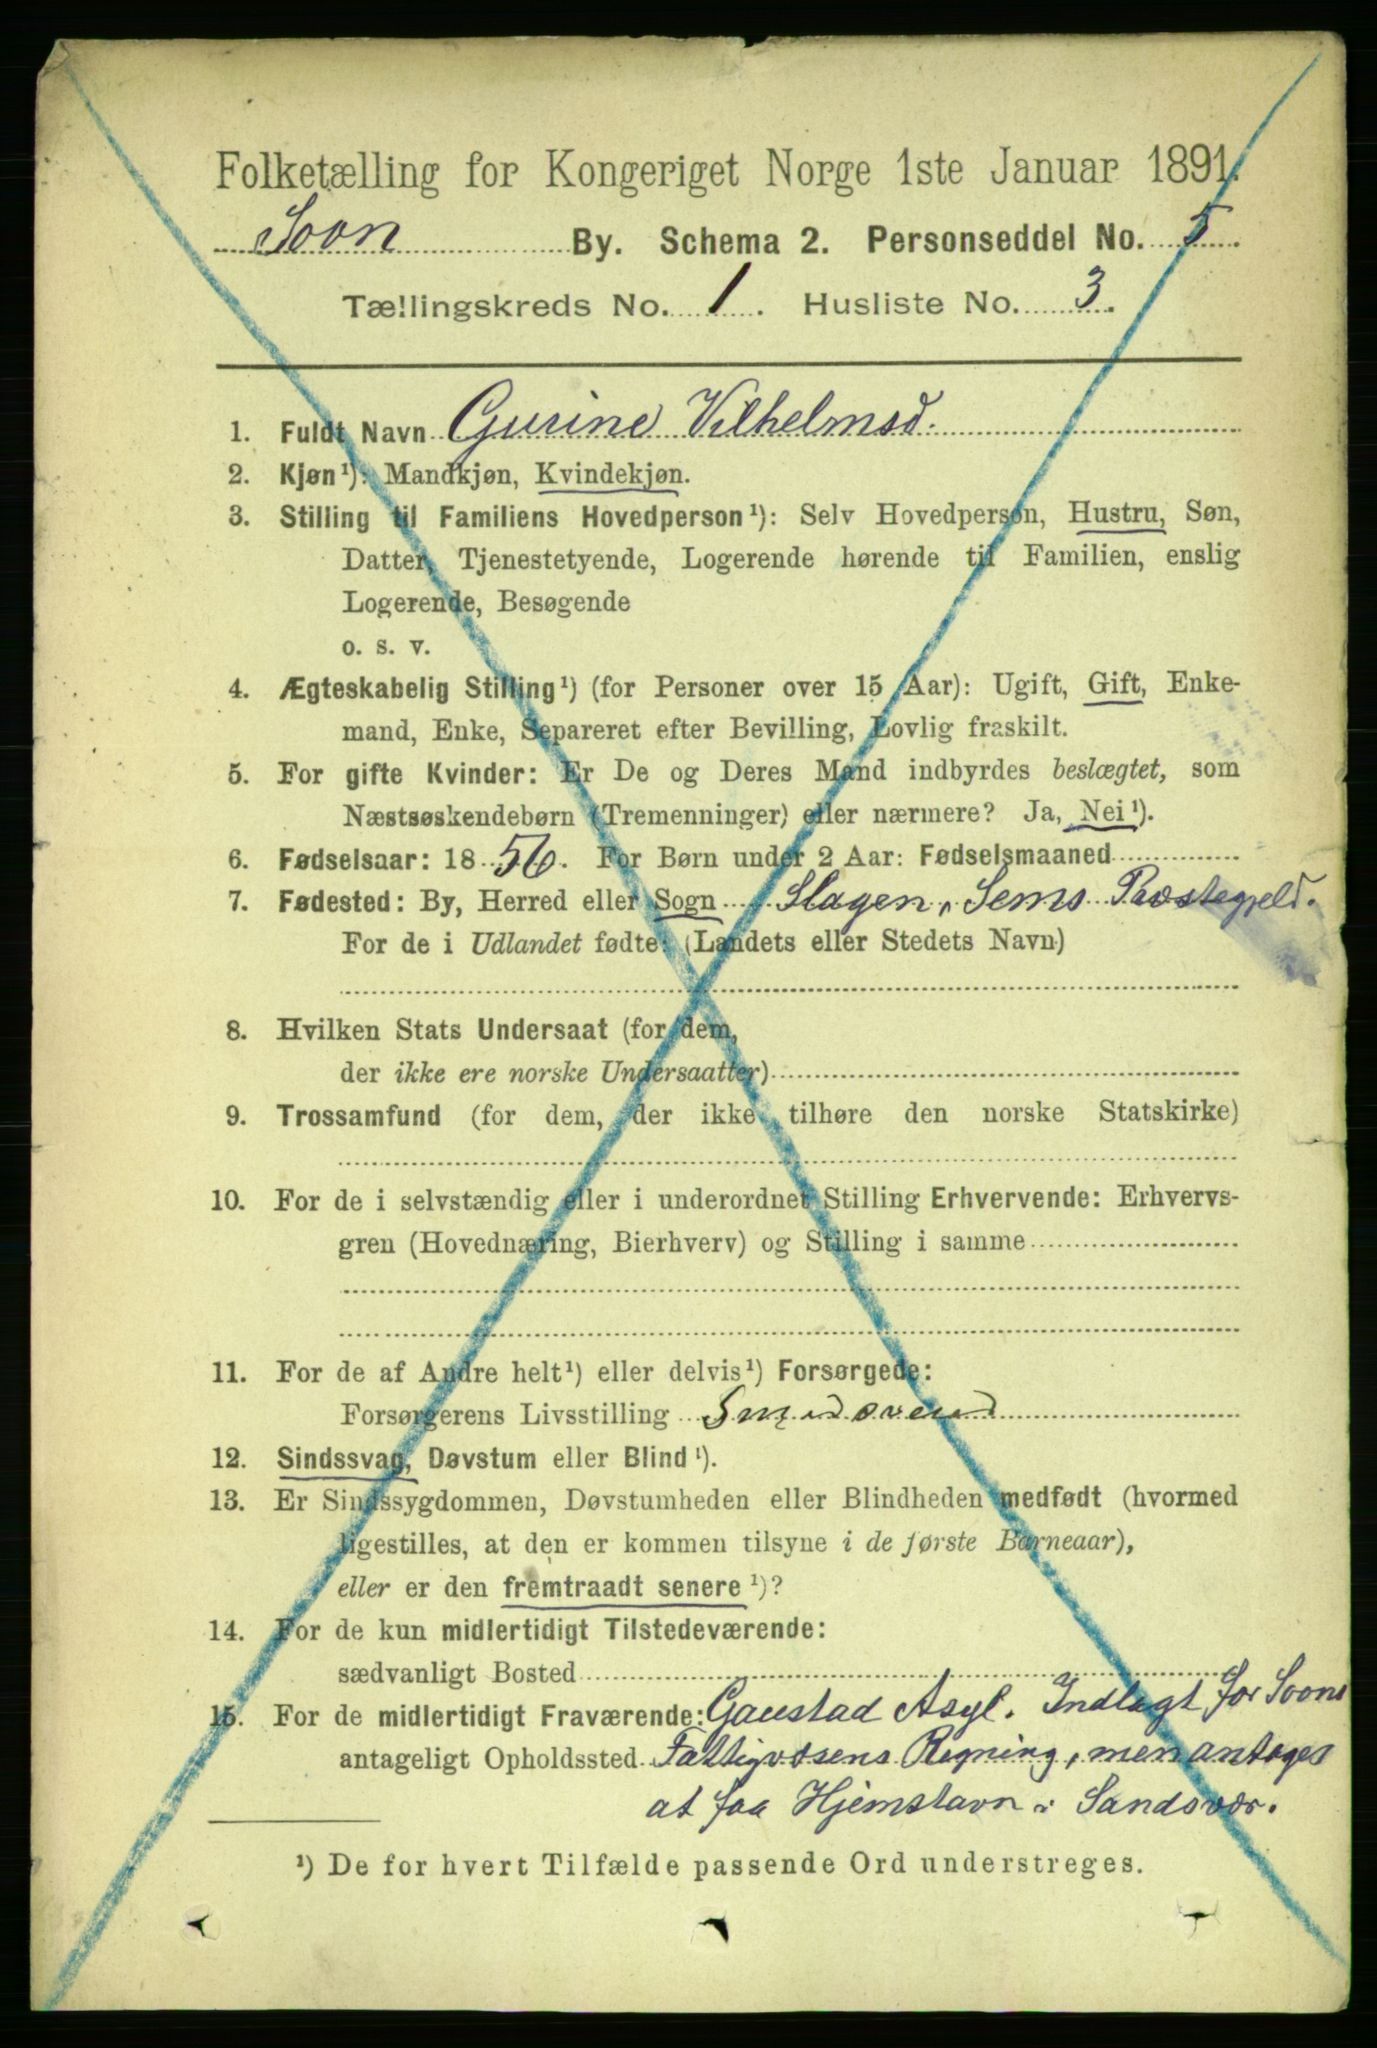 Folketælling for Kongeriget Norge 1ste Januar 1891.
Soon By. Schema 2. Personseddel No. 5.
Tællingskreds No. 1. Husliste No. 3.
1. Fuldt Navn Gurine Vilhelmsd.
2. Kjøn¹): Mandkjøn, Kvindekjøn.
3. Stilling til Familiens Hovedperson¹): Selv Hovedperson, Hustru, Søn,
Datter, Tjenestetyende, Logerende hørende til Familien, enslig
Logerende, Besøgende
o. s. v.
4. Ægteskabelig Stilling¹) (for Personer over 15 Aar): Ugift, Gift, Enke-
mand, Enke, Separeret efter Bevilling, Lovlig fraskilt.
5. For gifte Kvinder: Er De og Deres Mand indbyrdes beslægtet, som
Næstsøskendebørn (Tremenninger) eller nærmere? Ja, Nei¹).
6. Fødselsaar: 1856. For Børn under 2 Aar: Fødselsmaaned
7. Fødested: By, Herred eller Sogn Slagen, Sems Præstegjeld.
For de i Udlandet fødte: (Landets eller Stedets Navn)
8. Hvilken Stats Undersaat (for dem,
der ikke ere norske Undersaatter)
9. Trossamfund (for dem, der ikke tilhøre den norske Statskirke)
10. For de i selvstændig eller i underordnet Stilling Erhvervende: Erhvervs-
gren (Hovednæring, Bierhverv) og Stilling i samme
11. For de af Andre helt¹) eller delvis¹) Forsørgede:
Forsørgerens Livsstilling Smedsvend
12. Sindssvag, Døvstum eller Blind¹).
13. Er Sindssygdommen, Døvstumheden eller Blindheden medfødt (hvormed
ligestilles, at den er kommen tilsyne i de første Barneaar),
eller er den fremtraadt senere¹)?
14. For de kun midlertidigt Tilstedeværende:
sædvanligt Bosted
15. For de midlertidigt Fraværende: Gaustad Asyl. Indlagt for Soons
antageligt Opholdssted Fattigvæsens Regning, men antages
at faa Hjemstavn i Sandsvær.
¹) De for hvert Tilfælde passende Ord understreges.